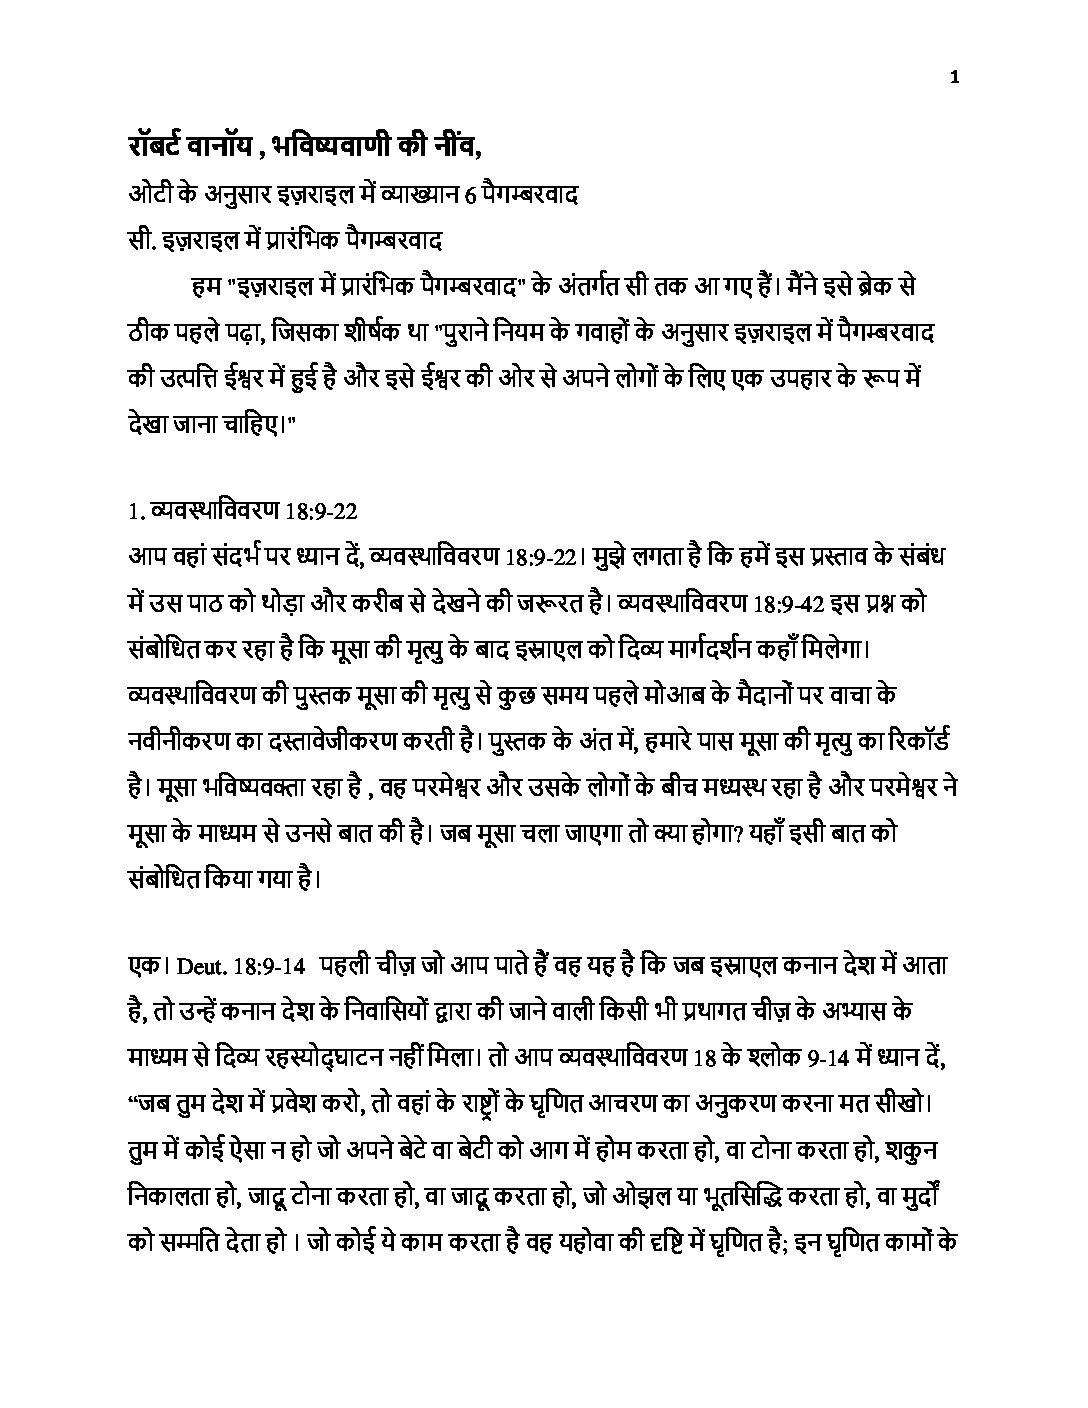 1
रॉबर्ट वानॉय , भविष्यवाणी की नींव,
ओटी के अनुसार इज़राइल में व्याख्यान 6 पैगम्बरवाद
सी. इज़राइल में प्रारंभिक पैगम्बरवाद
हम "इज़राइल में प्रारंभिक पैगम्बरवाद" के अंतर्गत सी तक आ गए हैं। मैंने इसे ब्रेक से
ठीक पहले पढ़ा, जिसका शीर्षक था "पुराने नियम के गवाहों के अनुसार इज़राइल में पैगम्बरवाद
की उत्पत्ति ईश्वर में हुई है और इसे ईश्वर की ओर से अपने लोगों के लिए एक उपहार के रूप में
देखा जाना चाहिए।"
1. व्यवस्थाविवरण 18:9-22
आप वहां संदर्भ पर ध्यान दें, व्यवस्थाविवरण 18:9-22। मुझे लगता है कि हमें इस प्रस्ताव के संबंध
में उस पाठ को थोड़ा और करीब से देखने की जरूरत है। व्यवस्थाविवरण 18:9-42 इस प्रश्न को
संबोधित कर रहा है कि मूसा की मृत्यु के बाद इस्राएल को दिव्य मार्गदर्शन कहाँ मिलेगा।
व्यवस्थाविवरण की पुस्तक मूसा की मृत्यु से कुछ समय पहले मोआब के मैदानों पर वाचा के
नवीनीकरण का दस्तावेजीकरण करती है। पुस्तक के अंत में, हमारे पास मूसा की मृत्यु का रिकॉर्ड
है। मूसा भविष्यवक्ता रहा है , वह परमेश्वर और उसके लोगों के बीच मध्यस्थ रहा है और परमेश्वर ने
मूसा के माध्यम से उनसे बात की है। जब मूसा चला जाएगा तो क्या होगा? यहाँ इसी बात को
संबोधित किया गया है।
एक। Deut. 18:9-14 पहली चीज़ जो आप पाते हैं वह यह है कि जब इस्राएल कनान देश में आता
है, तो उन्हें कनान देश के निवासियों द्वारा की जाने वाली किसी भी प्रथागत चीज़ के अभ्यास के
माध्यम से दिव्य रहस्योद्घाटन नहीं मिला। तो आप व्यवस्थाविवरण 18 के श्लोक 9-14 में ध्यान दें,
“जब तुम देश में प्रवेश करो, तो वहां के राष्ट्रों के घृणित आचरण का अनुकरण करना मत सीखो।
तुम में कोई ऐसा न हो जो अपने बेटे वा बेटी को आग में होम करता हो, वा टोना करता हो, शकुन
निकालता हो, जादू टोना करता हो, वा जादू करता हो, जो ओझल या भूतसिद्धि करता हो, वा मुर्दों
को सम्मति देता हो । जो कोई ये काम करता है वह यहोवा की दृष्टि में घृणित है; इन घृणित कामों के